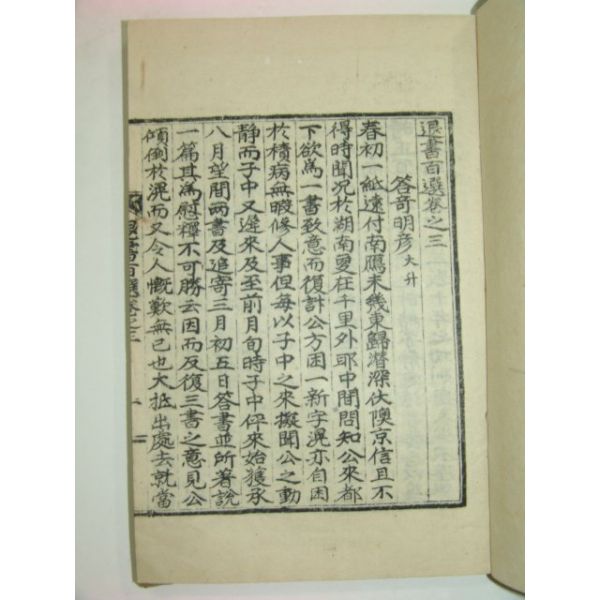 退書百選卷之三
答奇明彦 大升
春初一紙遠付南鴈未幾東歸潜深伏隩京信且不
得時聞况於湖南敻在千里外耶中間問知公來都
下欲爲一書致意而復計公方困一新字滉亦自困
於積病無暇修人事但每以子中之來擬聞公之動
靜而子中又遲來及至前月旬時子中伻來始獲承
八月望間兩書及追寄三月初五日答書並所著說
一篇其爲慰釋不可勝云因而反復三書之意見公
傾倒於滉而又令人慨歎無已也大抵出處去就當
退書百選卷之三 一